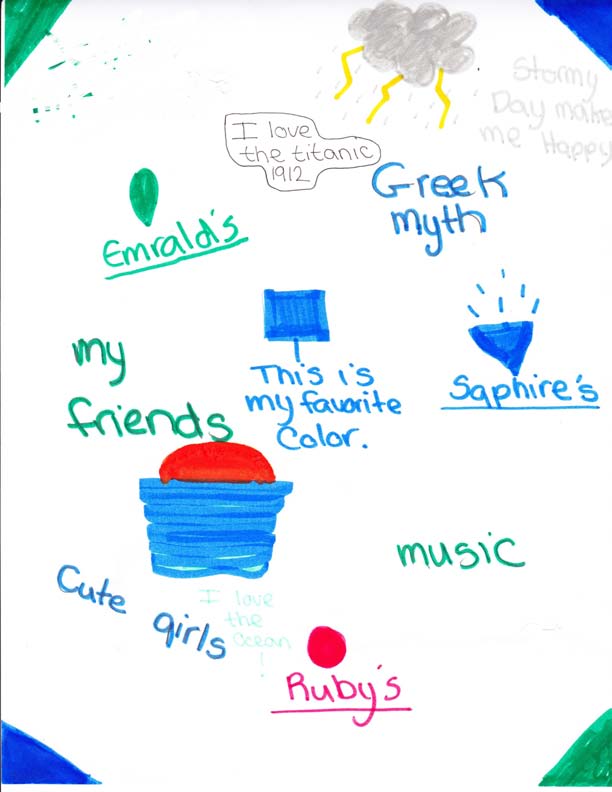 Stormy
Day make
me Happy
I love
the titanic
1912
Greek
myth
Emrald's
This is
my favorite
Color.
Saphire's
my
friends
music
Cute girls
I love
the
Ocean
!
Ruby's